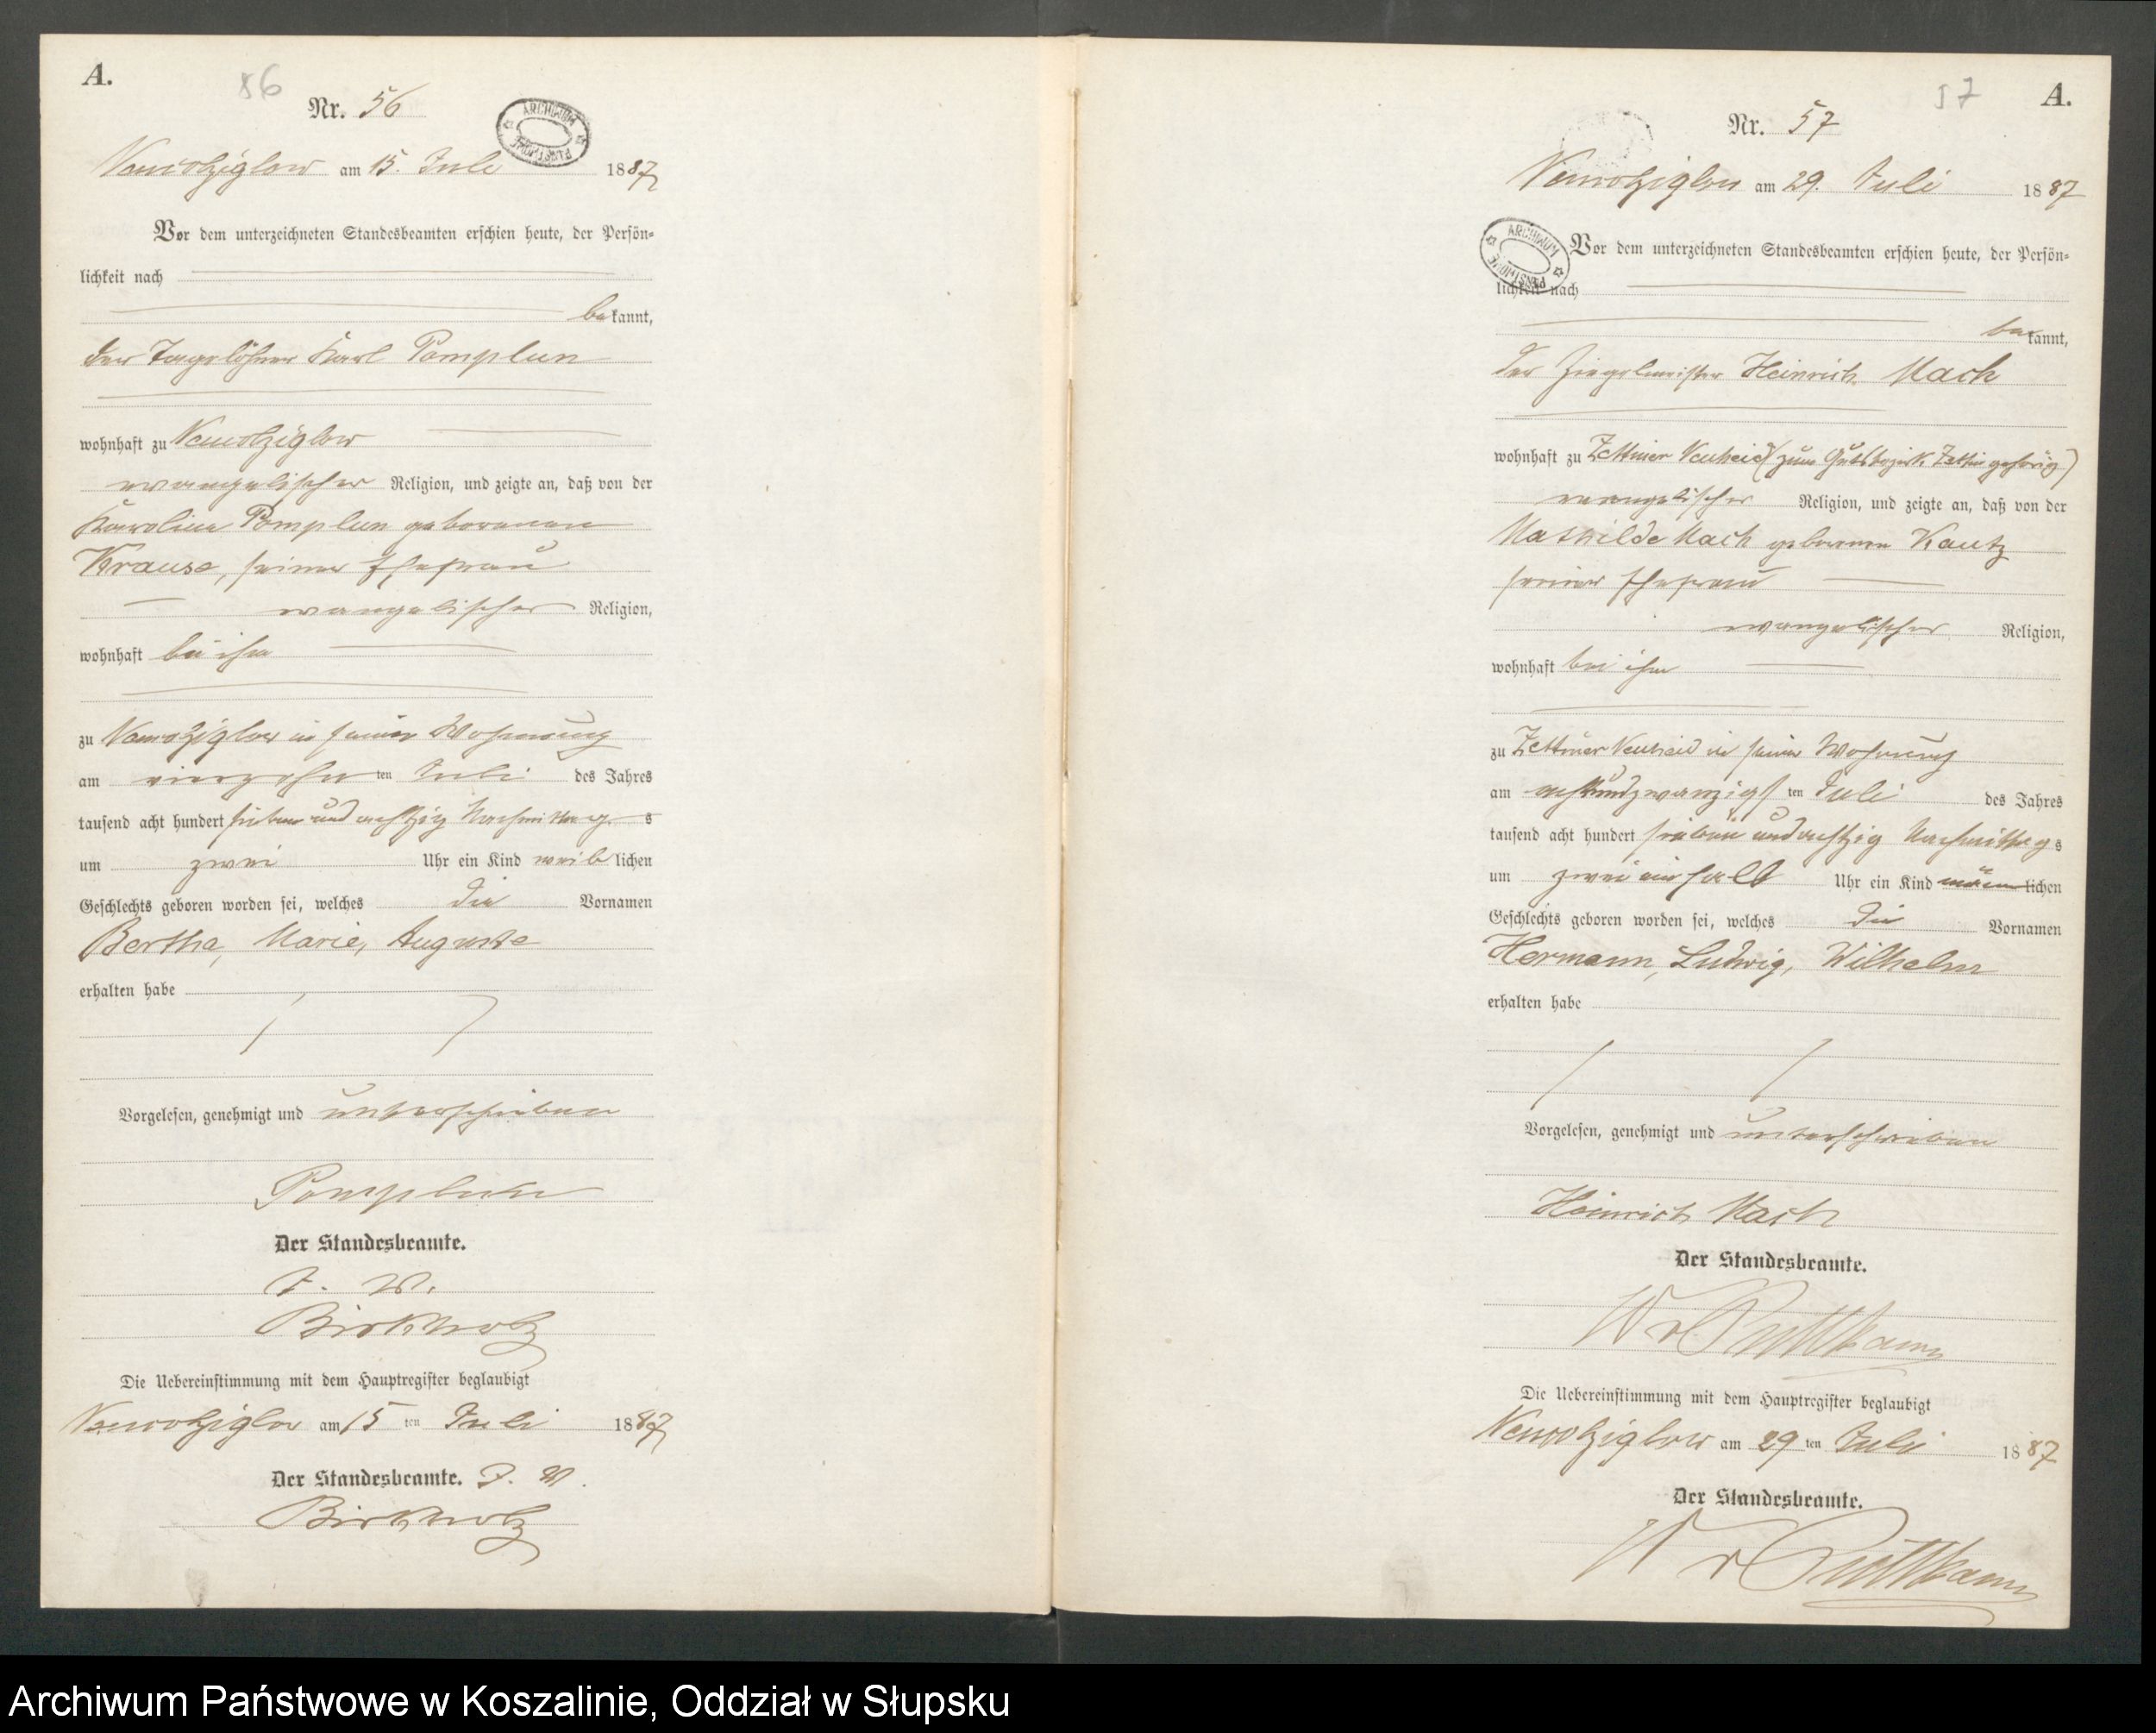 A.
56
Nr. 56
ARCHIWUM PAŃSTWOWE
Wendischziglow am 15. Juli 1887
Vor dem unterzeichneten Standesbeamten erschien heute, der Persön=
lichkeit nach
bekannt,
der Tagelöhner Karl Pomplun
wohnhaft zu
evangelischer Religion, und zeigte an, daß von der
Karoline Pomplun geborenen
Krause, seiner Ehefrau
evangelischer Religion,
wohnhaft bei ihm
zu in seiner Wohnung
am vierzehn ten Juli des Jahres
tausend acht hundert sieben und achtzig Nachmittag s
um zwei Uhr ein Kind weiblichen
Geschlechts geboren worden sei, welches die Vornamen
Bertha, Marie, Auguste
erhalten habe
Vorgelesen, genehmigt und unterschrieben
Pomplun
Der Standesbeamte.
J. V.
Birkholz
Die Uebereinstimmung mit dem Hauptregister beglaubigt
am 15 ten Juli 1887
Der Standesbeamte. J. V.
Birkholz
57
A.
Nr. 57
am 29. Juli 1887
ARCHIWUM PAŃSTWOWE
Vor dem unterzeichneten Standesbeamten erschien heute, der Persön=
lichkeit nach
bekannt,
der Ziegelmeister Heinrich Mach
wohnhaft zu Zettiner Neuheid (zum Gutsbezirk Zettin gehörig)
evangelischer Religion, und zeigte an, daß von der
Mathilde Mach geborenen Kautz
seiner Ehefrau
evangelischer Religion,
wohnhaft bei ihm
zu Zettiner Neuheid in seiner Wohnung
am achtundzwanzigst ten Juli des Jahres
tausend acht hundert sieben und achtzig Nachmittag s
um zwei ein halb Uhr ein Kind männlichen
Geschlechts geboren worden sei, welches die Vornamen
Hermann, Ludwig, Wilhelm
erhalten habe
Vorgelesen, genehmigt und unterschrieben
Heinrich Mach
Der Standesbeamte.
W v Puttkamer
Die Uebereinstimmung mit dem Hauptregister beglaubigt
am 29 ten Juli 1887
Der Standesbeamte.
W v Puttkamer
Archiwum Państwowe w Koszalinie, Oddział w Słupsku